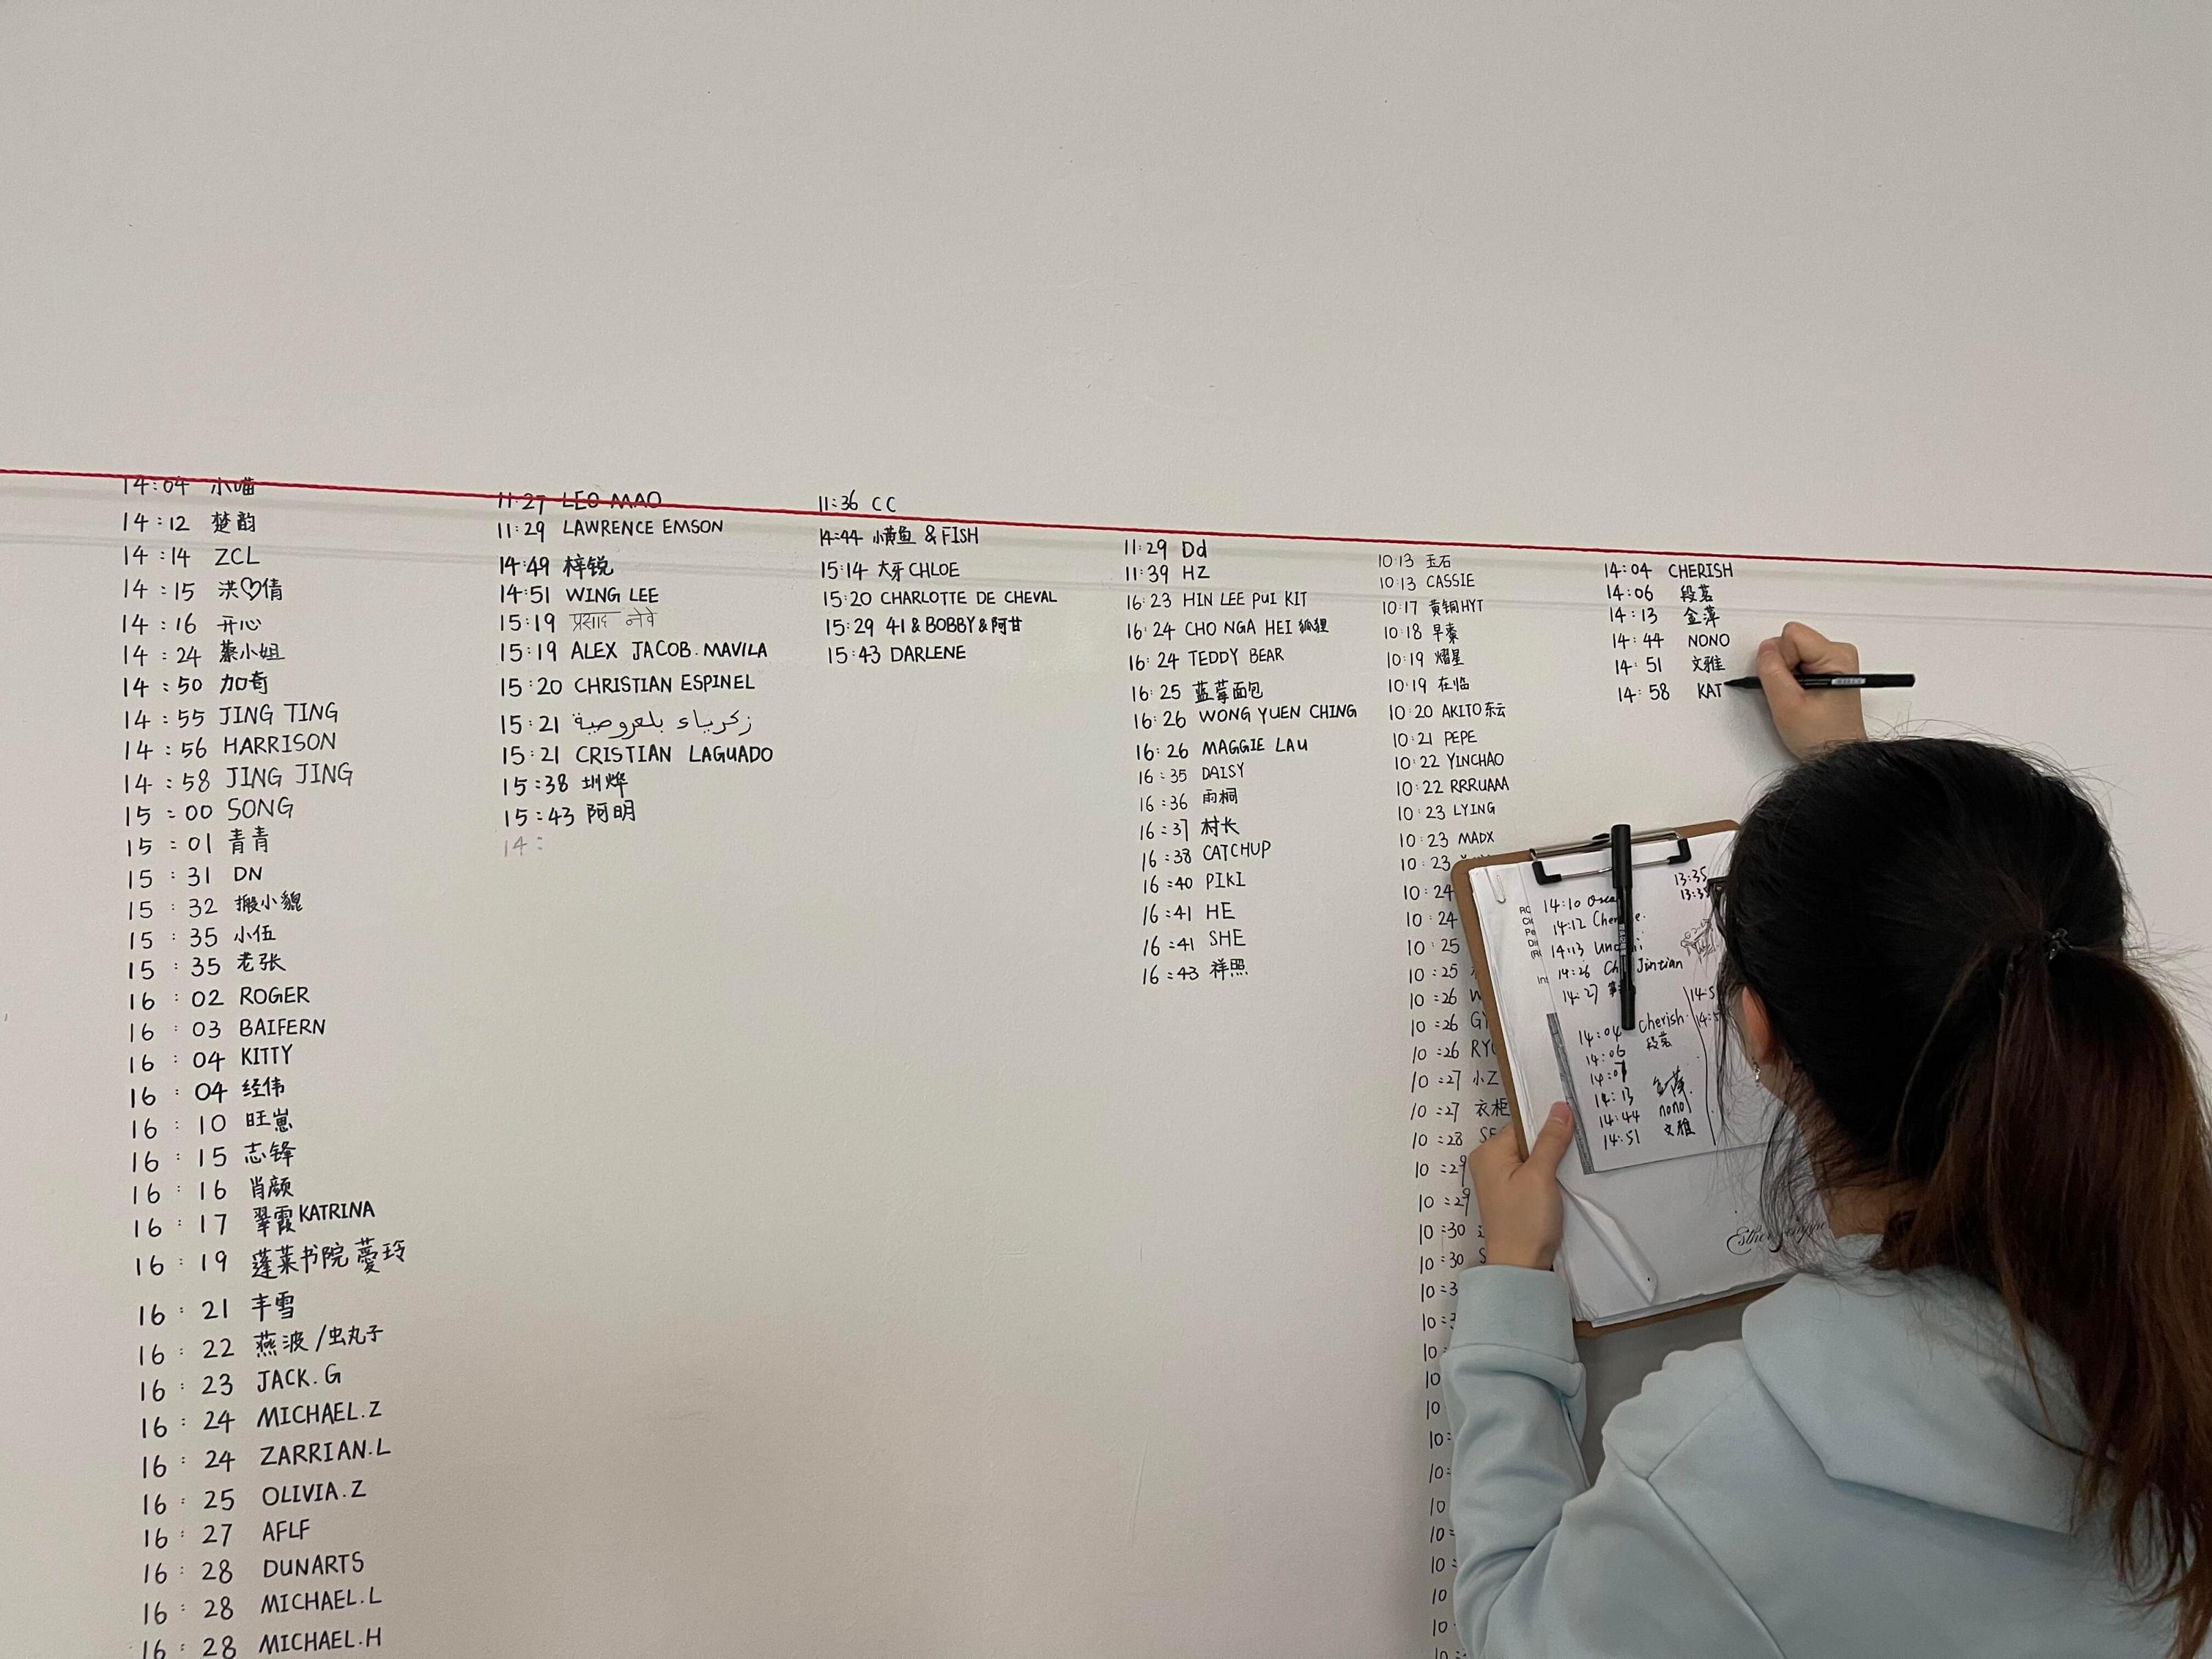 14:04 小喵
14:12 楚韵
14:14 ZCL
14:15 洪♡倩
14:16 开心
14:24 蔡小姐
14:50 加奇
14:55 JING TING
14:56 HARRISON
14:58 JING JING
15:00 SONG
15:01 青青
15:31 DN
15:32 搬小貌
15:35 小伍
15:35 老张
16:02 ROGER
16:03 BAIFERN
16:04 KITTY
16:04 经伟
16:10 旺崽
16:15 志锋
16:16 肖颜
16:17 翠霞KATRINA
16:19 蓬莱书院 薆玲
16:21 丰雪
16:22 燕波/虫丸子
16:23 JACK.G
16:24 MICHAEL.Z
16:24 ZARRIAN.L
16:25 OLIVIA.Z
16:27 AFLF
16:28 DUNARTS
16:28 MICHAEL.L
16:28 MICHAEL.H
11:27 LEO MAO
11:29 LAWRENCE EMSON
14:49 梓锐
14:51 WING LEE
15:19 प्रसाद नेवे
15:19 ALEX JACOB.MAVILA
15:20 CHRISTIAN ESPINEL
15:21 زكرياء بلعروصية
15:21 CRISTIAN LAGUADO
15:38 圳烨
15:43 阿明
14:
11:36 CC
14:44 小黄鱼 & FISH
15:14 大牙CHLOE
15:20 CHARLOTTE DE CHEVAL
15:29 41 & BOBBY & 阿甘
15:43 DARLENE
11:29 Dd
11:39 HZ
16:23 HIN LEE PUI KIT
16:24 CHO NGA HEI 狐狸
16:24 TEDDY BEAR
16:25 蓝莓面包
16:26 WONG YUEN CHING
16:26 MAGGIE LAU
16:35 DAISY
16:36 雨桐
16:37 村长
16:38 CATCHUP
16:40 PIKI
16:41 HE
16:41 SHE
16:43 祥照
10:13 玉石
10:13 CASSIE
10:17 黄铜HYT
10:18 早秦
10:19 熠星
10:19 在临
10:20 AKITO东云
10:21 PEPE
10:22 YINCHAO
10:22 RRRUAAA
10:23 LYING
10:23 MADX
10:23
10:24
10:24
10:25
10:25
10:26
10:26
10:26
10:27 小Z
10:27 衣柜
10:28
10:29
10:29
10:30
10:30
14:04 CHERISH
14:06 段茗
14:13 金萍
14:44 NONO
14:51 文雅
14:58 KAT
13:35
14:10
14:12
14:13
14:26 Jintian
14:27
14:04 Cherish
14:06 段茗
14:07
14:13 金萍
14:44 nono
14:51 文雅